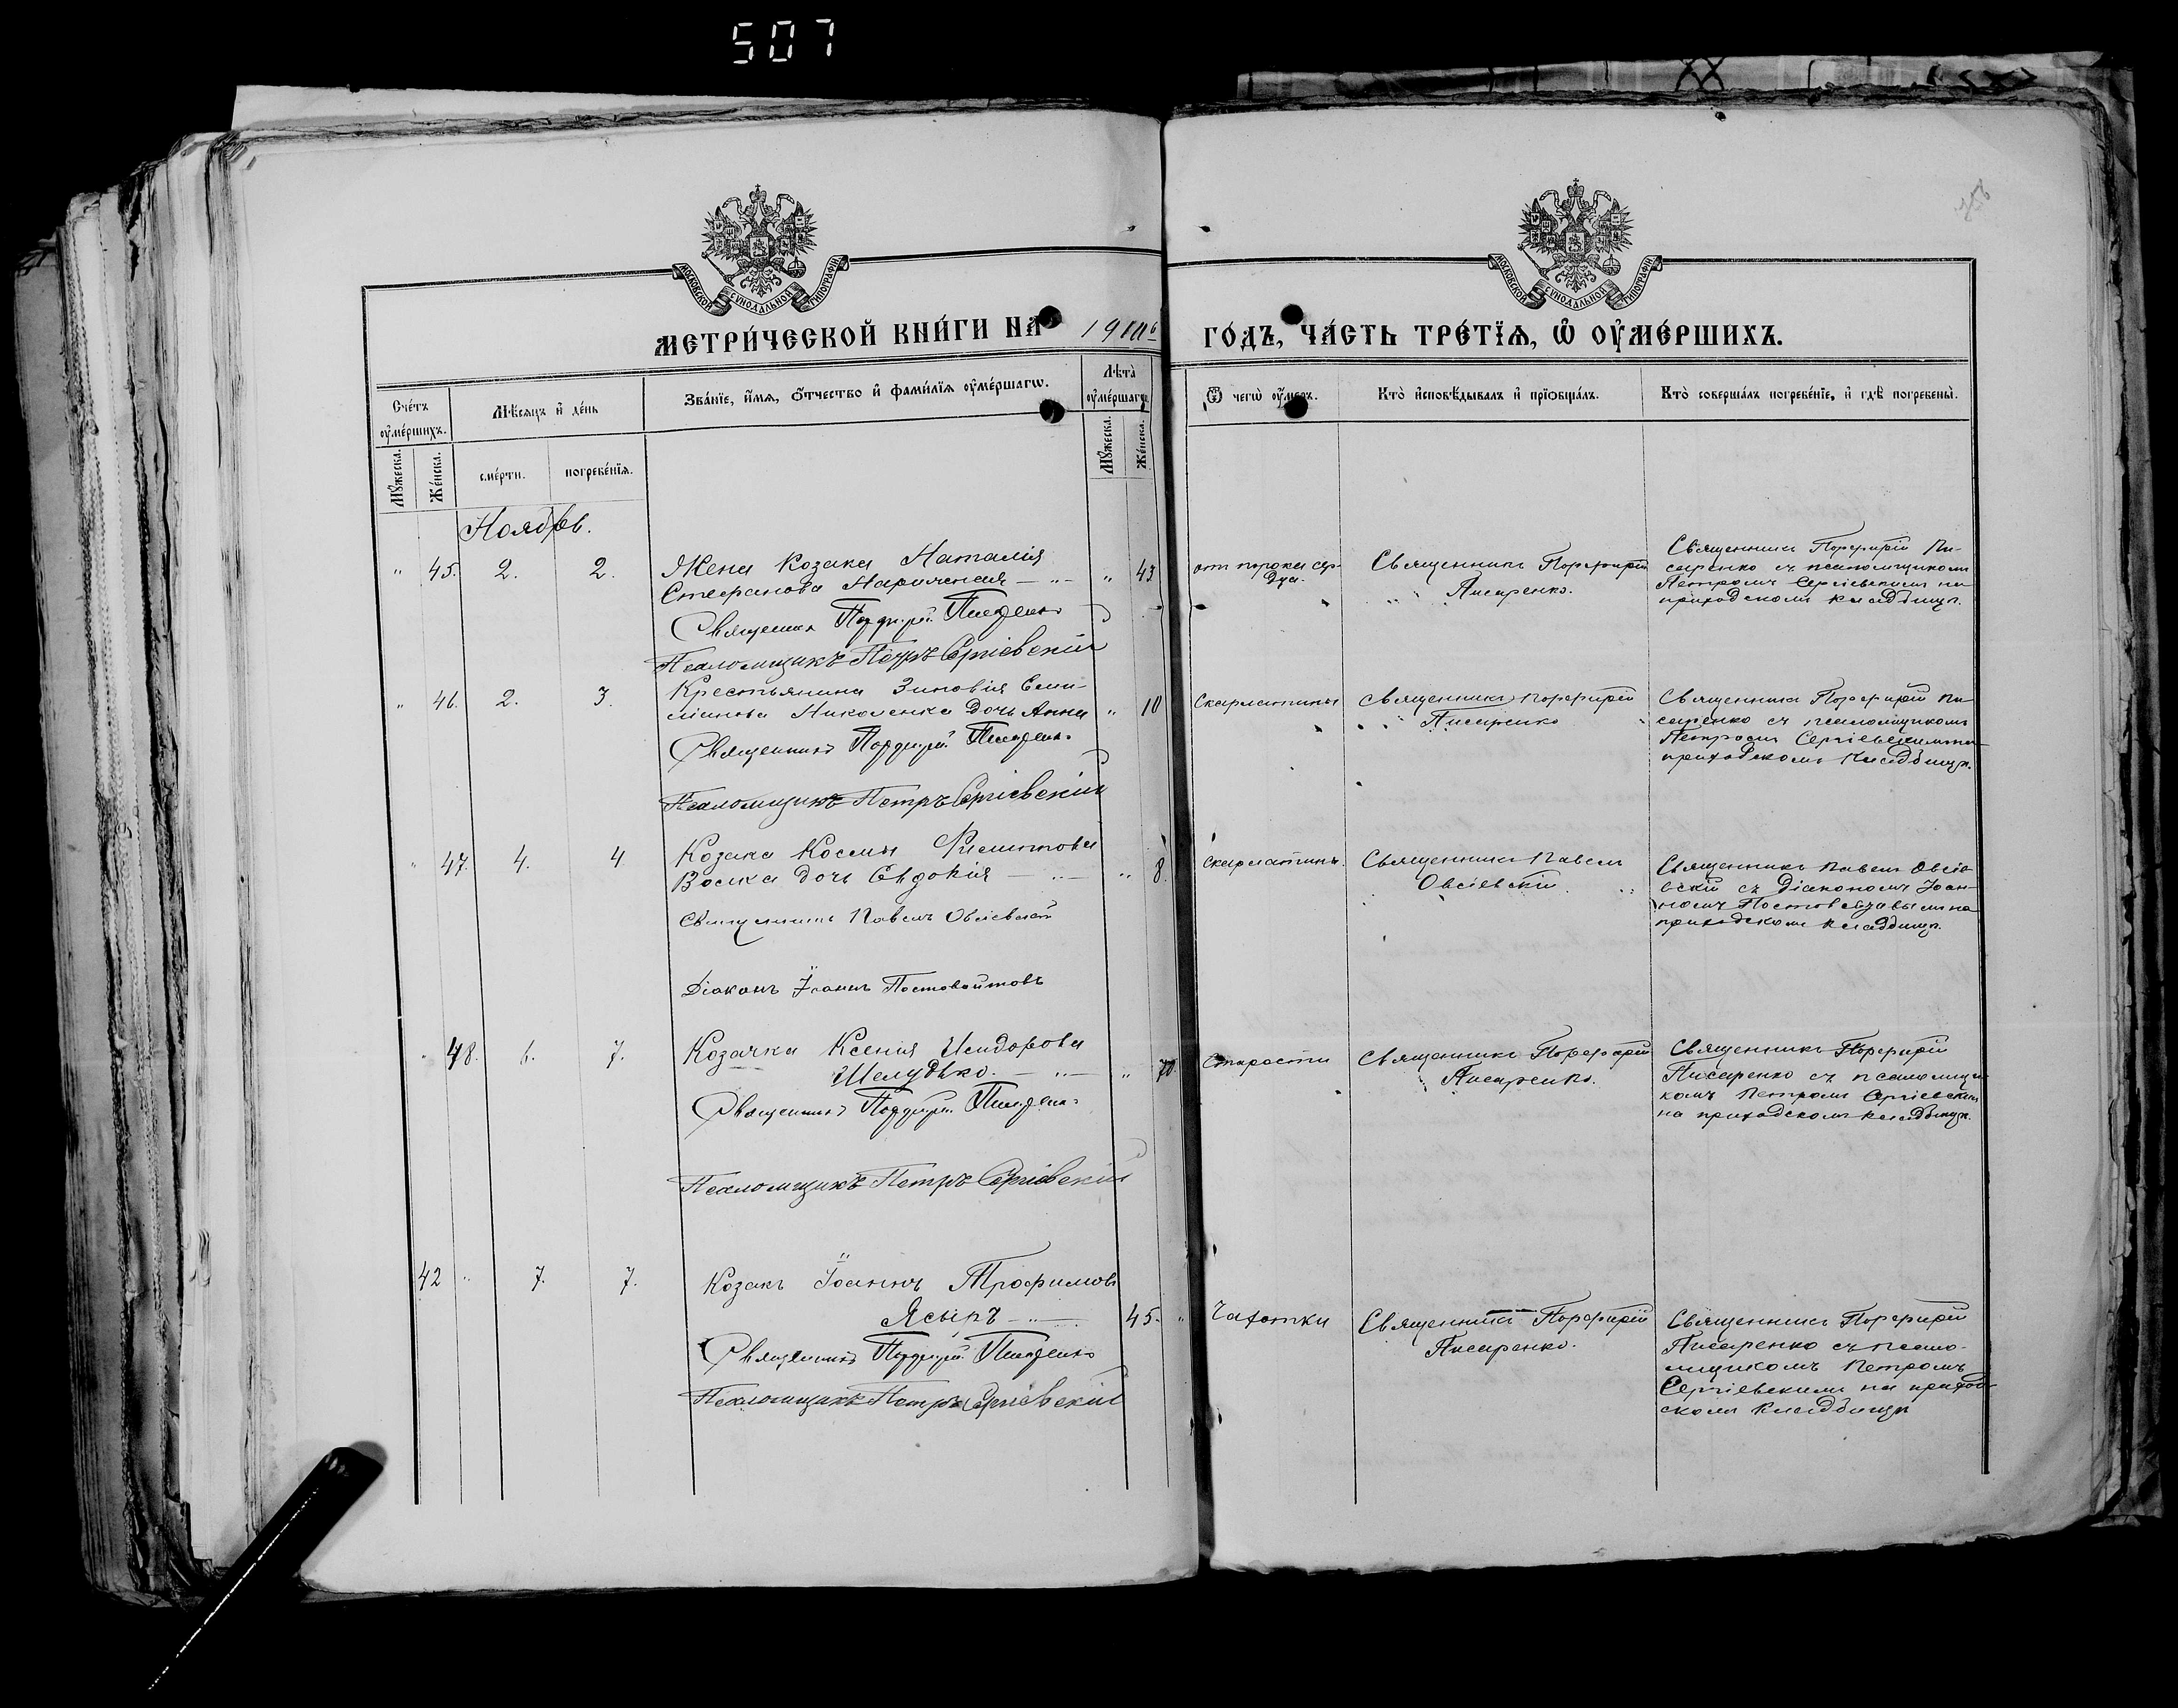 507
МОСКОВСКОЙ СУНОДАЛЬНОЙ ТИПОГРАФІИ
МОСКОВСКОЙ СУНОДАЛЬНОЙ ТИПОГРАФІИ
МЕТРИ́ЧЕСКОЙ КНИ́ГИ НА 191
ГО́ДЪ, ЧА́СТЬ ТРЕ́ТЇѦ, Ѿ ОУ҆МЕ́РШИХЪ.
Сче́тъ оу҆ме́ршихъ.
Мѣ́сяцъ и҆ де́нь
Зва́нїе, и҆́мѧ, ѻ҆́тчество и҆ фами́лїѧ оу҆ме́ршагѡ.
Лѣ́та оу҆ме́ршагѡ
Ѿ чегѡ̀ оу҆́меръ.
Кто̀ и҆сповѣ́дывалъ и҆ прїѻбща́лъ.
Кто̀ соверша́лъ погребе́нїе, и҆ гдѣ̀ погребены̀.
Мꙋ́жеска.
Же́нска.
сме́рти.
погребе́нїѧ.
Мꙋ́жеска.
Же́нска.
Ноябрь.
" 45. 2. 2. Жена Козака Наталія
Стефанова — " — " 43
Священникъ Порфирій Писаренко
Псаломщикъ Петръ Сергіевскій
отъ порока сер-
дца.
Священникъ Порфирій
Писаренко.
Священникъ Порфирій Пи-
саренко съ псаломщикомъ
Петромъ Сергіевскимъ на
приходскомъ кладбищѣ.
" 46. 2. 3. Крестьянина Зиновія Еми-
ліанова Николенка дочь Анна " 10
Священникъ Порфирій Писаренко
Псаломщикъ Петръ Сергіевскій
Скарлатины
Священникъ Порфирій
Писаренко
Священникъ Порфирій Пи-
саренко съ псаломщикомъ
Петромъ Сергіевскимъ на
приходскомъ кладбищѣ.
" 47. 4. 4 Козака Космы Филиппова
Волка дочь Евдокія — " — " 8.
Священникъ Павелъ Овсіевскій
Діаконъ Іоаннъ Постовойтовъ
Скарлатины.
Священникъ Павелъ
Овсіевскій.
Священникъ Павелъ Овсіе-
вскій съ Діакономъ Іоан-
номъ Постовойтовымъ на
приходскомъ кладбищѣ.
" 48. 6. 7. Козачка Ксенія Исидорова
Шелудько. — " — " 70
Священникъ Порфирій Писаренко
Псаломщикъ Петръ Сергіевскій
Старости
Священникъ Порфирій
Писаренко.
Священникъ Порфирій
Писаренко съ псаломщи-
комъ Петромъ Сергіевскимъ
на приходскомъ кладбищѣ.
42 " 7. 7. Козакъ Іоаннъ Трофимовъ
Ясыръ — " — 45. "
Священникъ Порфирій Писаренко
Псаломщикъ Петръ Сергіевскій
Чахотки
Священникъ Порфирій
Писаренко.
Священникъ Порфирій
Писаренко съ псало-
мщикомъ Петромъ
Сергіевскимъ на приход-
скомъ кладбищѣ